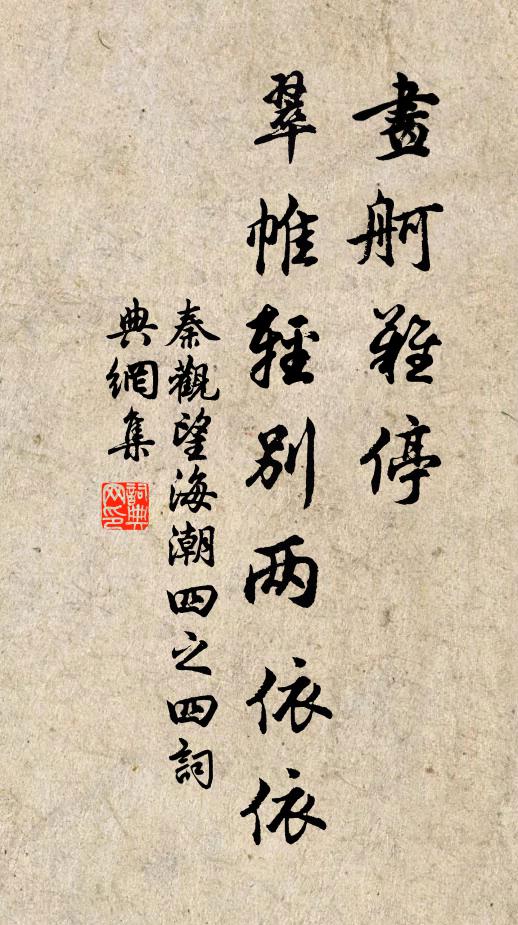 畫舸難停
翠帷輕別两依依
秦觀望海潮四之四詞
典網集
詞典
网印